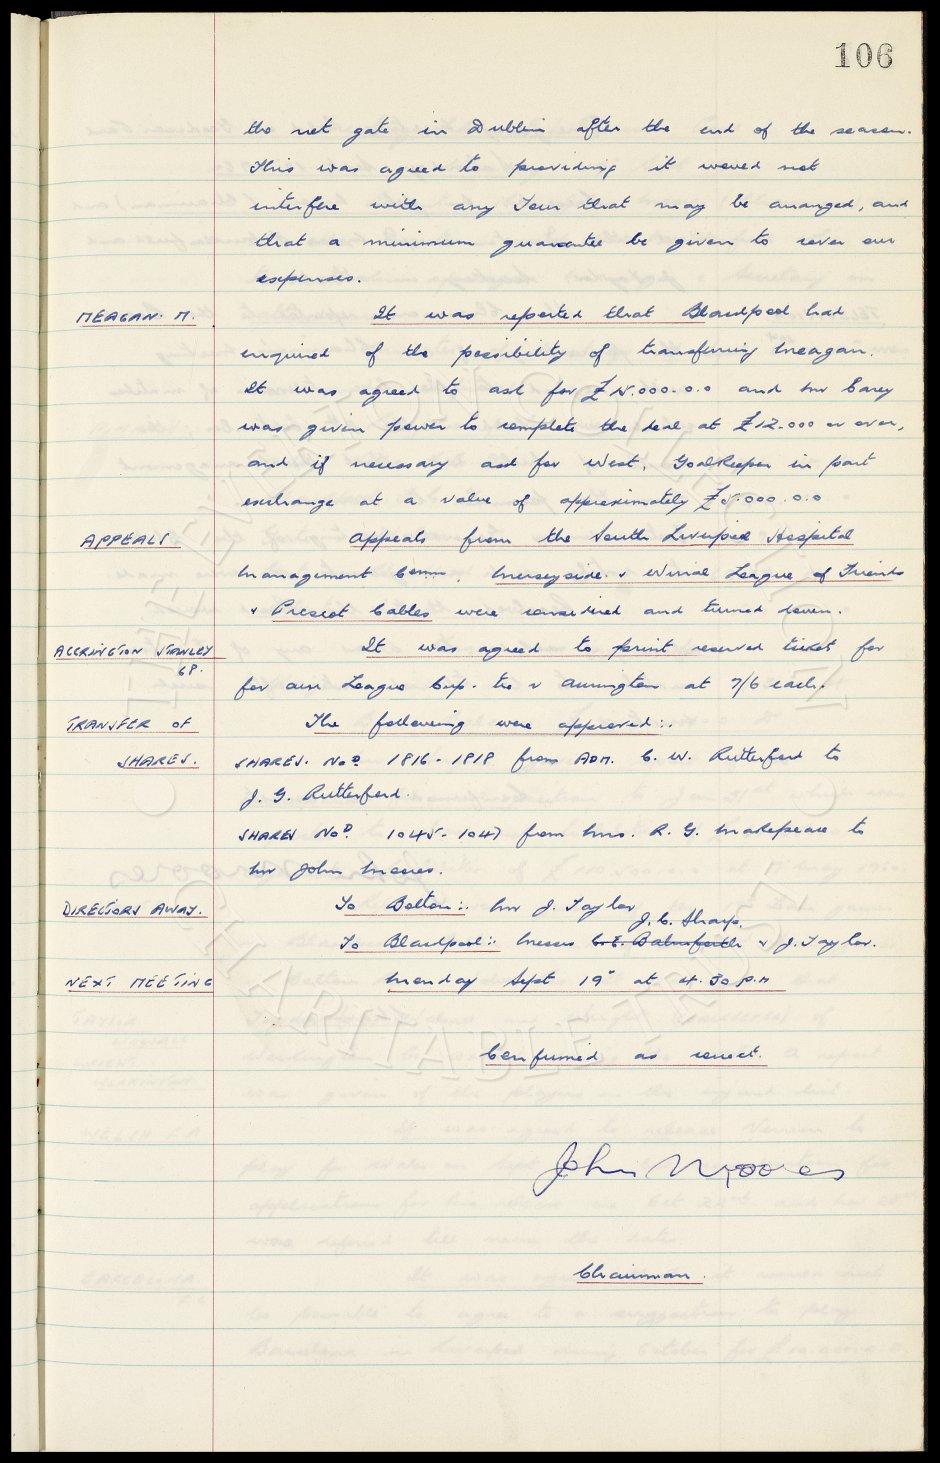 106
the net gate in Dublin after the end of the season.
This was agreed to providing it would not
interfere with any Tour that may be arranged, and
that a minimum guarantee be given to cover our
expenses.
MEAGAN. M. It was reported that Blackpool had
enquired of the possibility of transferring Meagan.
It was agreed to ask for £15.000.0.0 and Mr Carey
was given power to complete the deal at £12.000 or over,
and if necessary ask for West, Goalkeeper in part
exchange at a value of approximately £5.000.0.0
APPEALS Appeals from the South Liverpool Hospital
Management Comm, Merseyside & Wirral League of Friends
& Prescot Cables were considered and turned down.
ACCRINGTON STANLEY It was agreed to print reserved ticket for
for our League Cup. tie v Accrington at 7/6 each.
TRANSFER OF The following were approved:.
SHARES. SHARES. Nos. 1816-1818 from ADM. C. W. Rutterford to
J. G. Rutterford.
SHARES Nos. 1045-1047 from Mrs. R. G. Makepeace to
Mr John Moores.
DIRECTORS AWAY. To Bolton:. Mr J. Taylor
J.C. Sharp.
To Blackpool:. Messrs C.E. Balmforth & J. Taylor.
NEXT MEETING Monday Sept 19" at 4.30 P.M
Confirmed as correct.
John Moores
Chairman.